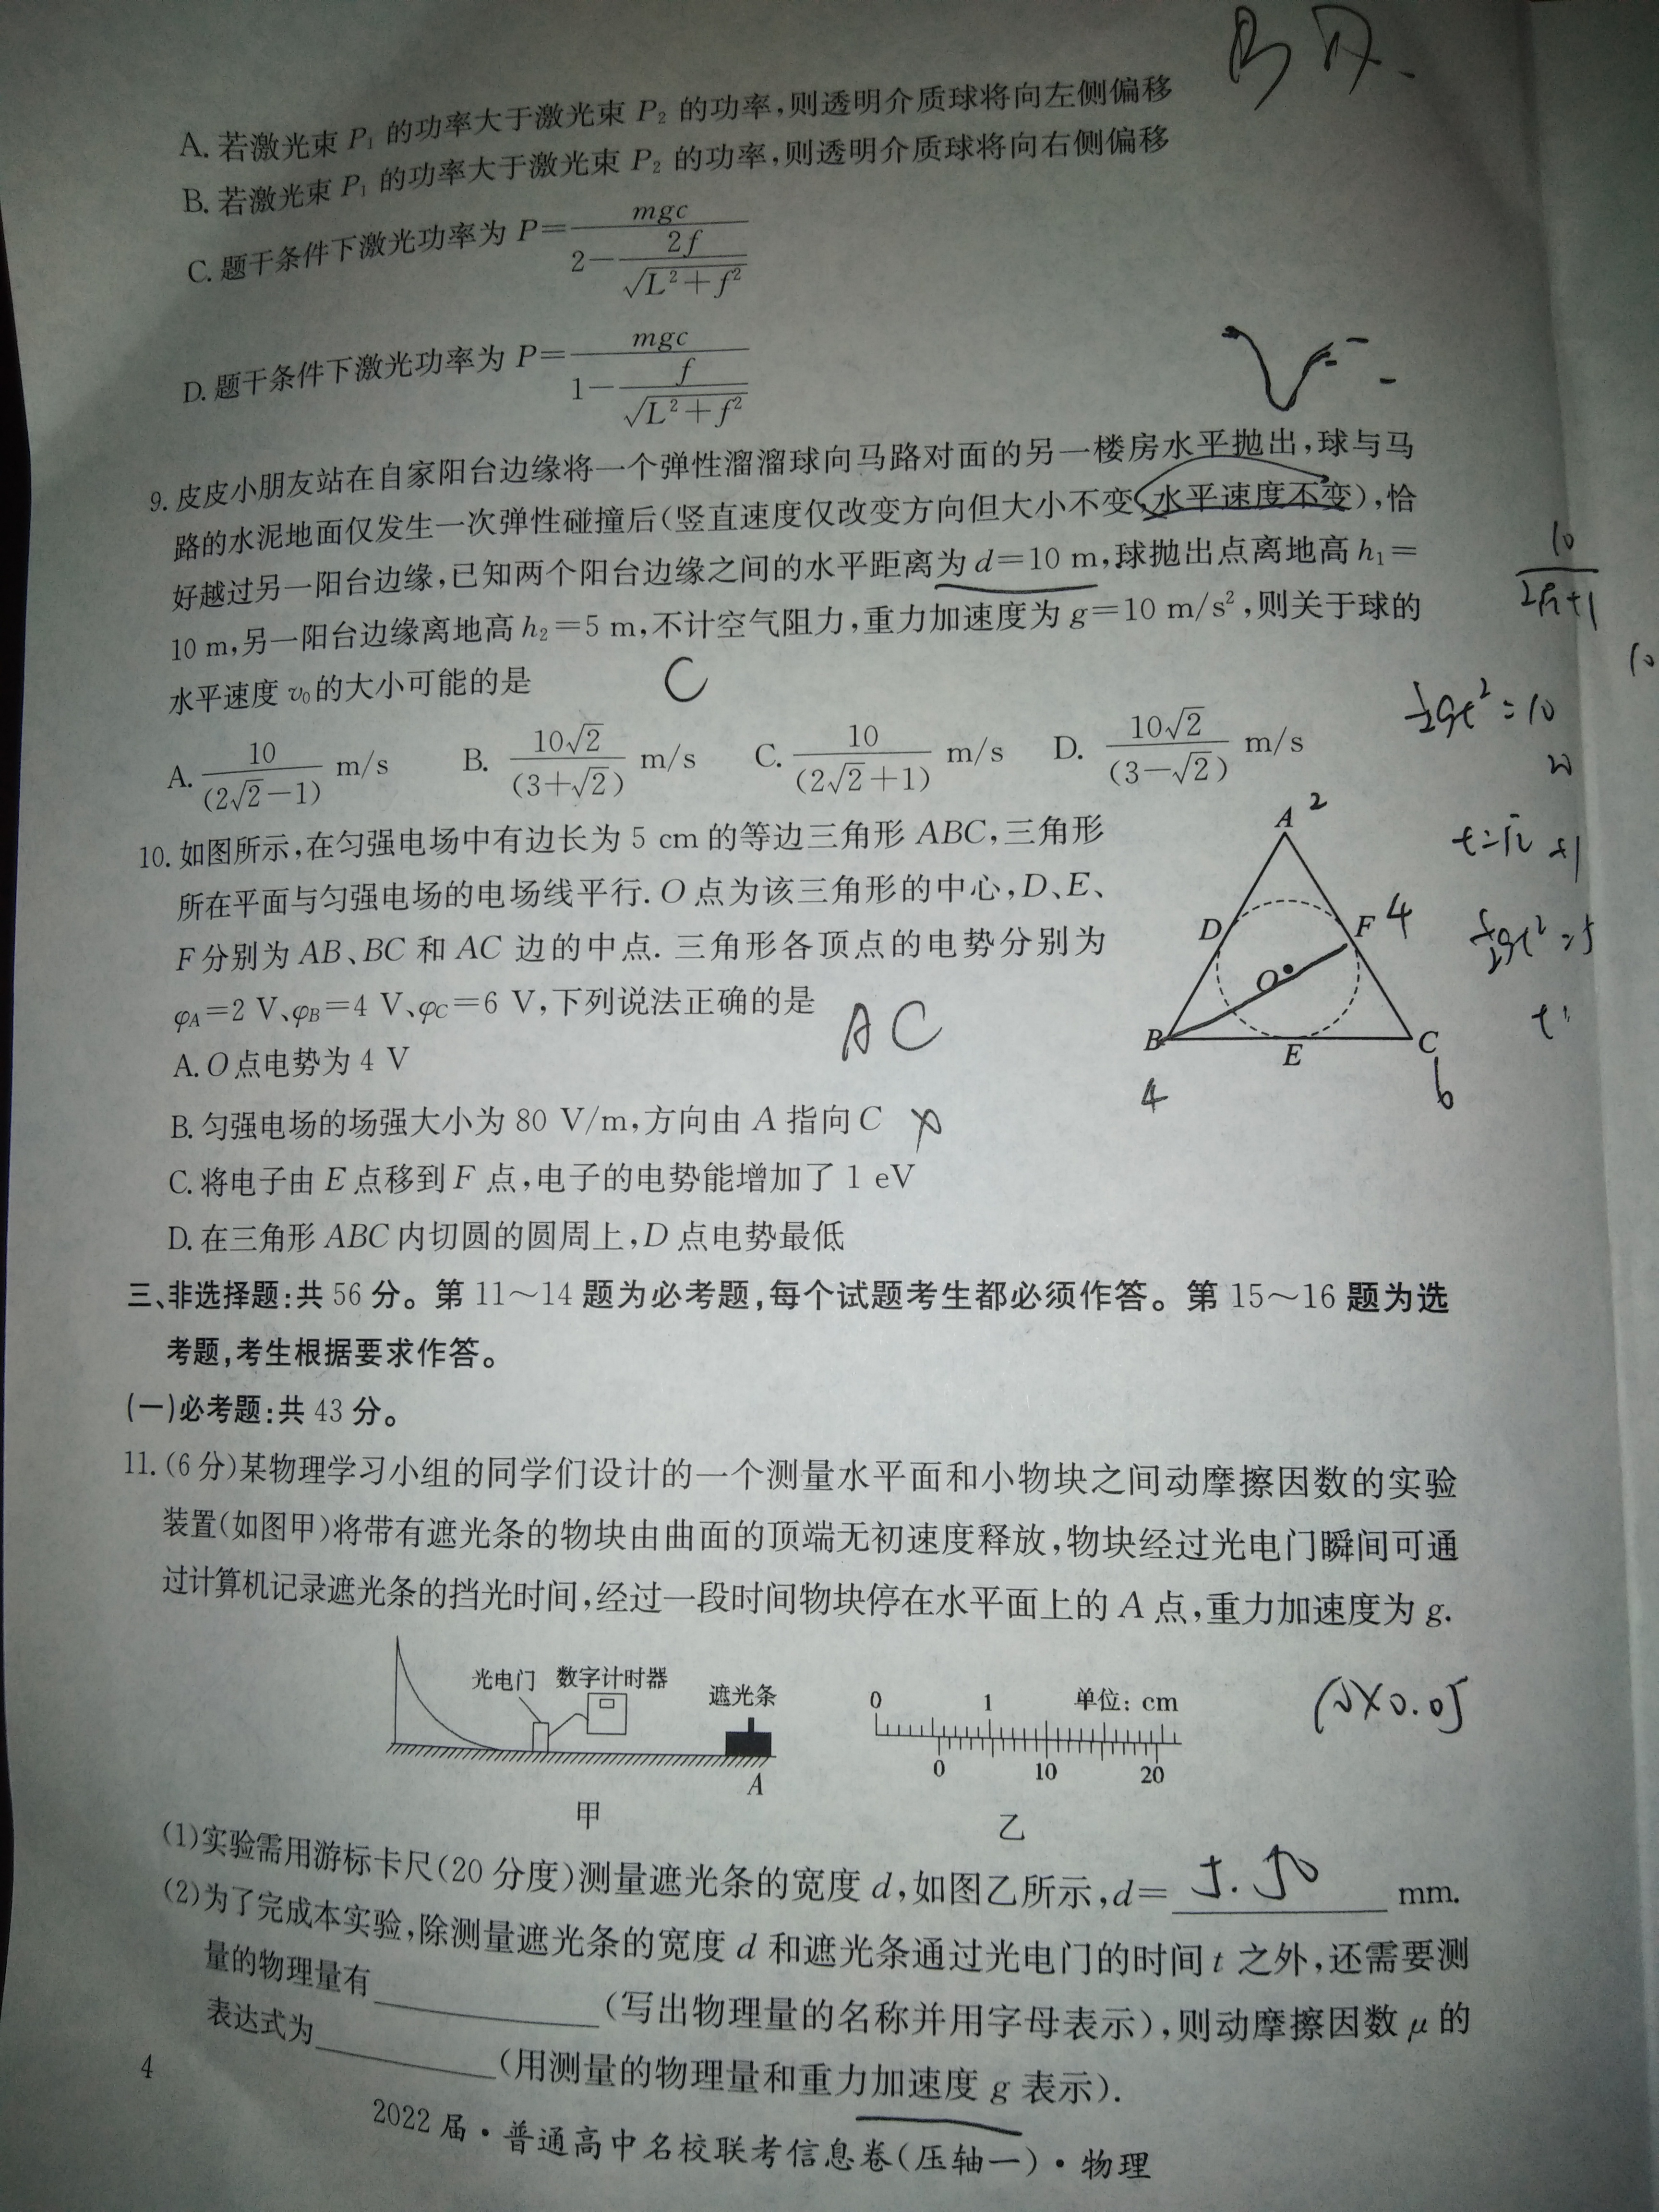 B D.
A. 若激光束 P₁ 的功率大于激光束 P₂ 的功率,则透明介质球将向左侧偏移
B. 若激光束 P₁ 的功率大于激光束 P₂ 的功率,则透明介质球将向右侧偏移
C. 题干条件下激光功率为 P=mgc/(2−2f/√(L²+f²))
D. 题干条件下激光功率为 P=mgc/(1−f/√(L²+f²))
9. 皮皮小朋友站在自家阳台边缘将一个弹性溜溜球向马路对面的另一楼房水平抛出,球与马
路的水泥地面仅发生一次弹性碰撞后(竖直速度仅改变方向但大小不变,水平速度不变),恰
好越过另一阳台边缘,已知两个阳台边缘之间的水平距离为 d=10 m,球抛出点离地高 h₁=
10 m,另一阳台边缘离地高 h₂=5 m,不计空气阻力,重力加速度为 g=10 m/s²,则关于球的
水平速度 v₀ 的大小可能的是 C
A. 10/(2√2−1) m/s B. 10√2/(3+√2) m/s C. 10/(2√2+1) m/s D. 10√2/(3−√2) m/s
10/(2√2+1)
10
½gt²=10
20
t=√2 +1
½gt²=5
10. 如图所示,在匀强电场中有边长为 5 cm 的等边三角形 ABC,三角形
所在平面与匀强电场的电场线平行. O 点为该三角形的中心,D、E、
F 分别为 AB、BC 和 AC 边的中点. 三角形各顶点的电势分别为
φA=2 V、φB=4 V、φC=6 V,下列说法正确的是 AC
A. O 点电势为 4 V
B. 匀强电场的场强大小为 80 V/m,方向由 A 指向 C ×
C. 将电子由 E 点移到 F 点,电子的电势能增加了 1 eV
D. 在三角形 ABC 内切圆的圆周上,D 点电势最低
A 2
D F 4
O
B E C
4 6
三、非选择题:共 56 分。第 11～14 题为必考题,每个试题考生都必须作答。第 15～16 题为选
考题,考生根据要求作答。
(一)必考题:共 43 分。
11. (6 分)某物理学习小组的同学们设计的一个测量水平面和小物块之间动摩擦因数的实验
装置(如图甲)将带有遮光条的物块由曲面的顶端无初速度释放,物块经过光电门瞬间可通
过计算机记录遮光条的挡光时间,经过一段时间物块停在水平面上的 A 点,重力加速度为 g.
光电门 数字计时器 遮光条
A
甲
0 1 单位: cm
0 10 20
乙
(1)实验需用游标卡尺(20 分度)测量遮光条的宽度 d,如图乙所示,d= 5.50 mm.
(2)为了完成本实验,除测量遮光条的宽度 d 和遮光条通过光电门的时间 t 之外,还需要测
量的物理量有________(写出物理量的名称并用字母表示),则动摩擦因数 μ 的
表达式为________(用测量的物理量和重力加速度 g 表示).
4
2022 届·普通高中名校联考信息卷(压轴一)·物理